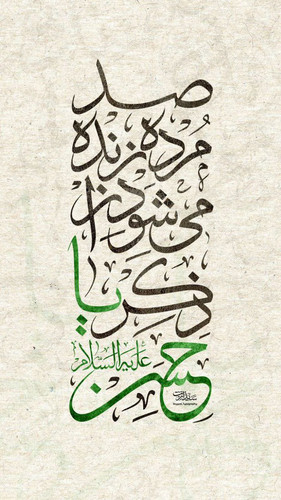 صد
مُرده زنده
می‌شود از
ذکر یا
حسن علیه السلام